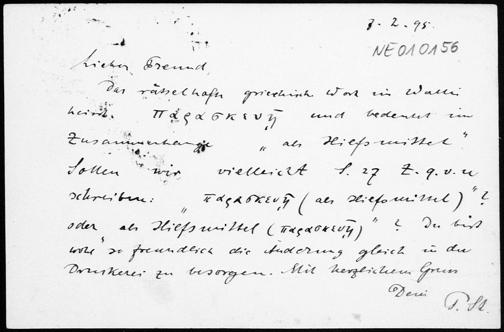 7. 2. 95.
NE010156
Lieber Freund,
Das rätselhafte griechische Wort im Wallis
heisst παρασκευῇ und bedeutet im
Zusammenhange „als Hilfsmittel“.
Sollen wir vielleicht S. 27 Z. 9. v. u
schreiben: „παρασκευῇ (als Hilfsmittel)“?
oder als Hilfsmittel (παρασκευῇ)“? Du bist
wohl so freundlich die Änderung gleich in der
Druckerei zu besorgen. Mit herzlichem Gruss
Dein
P. St.